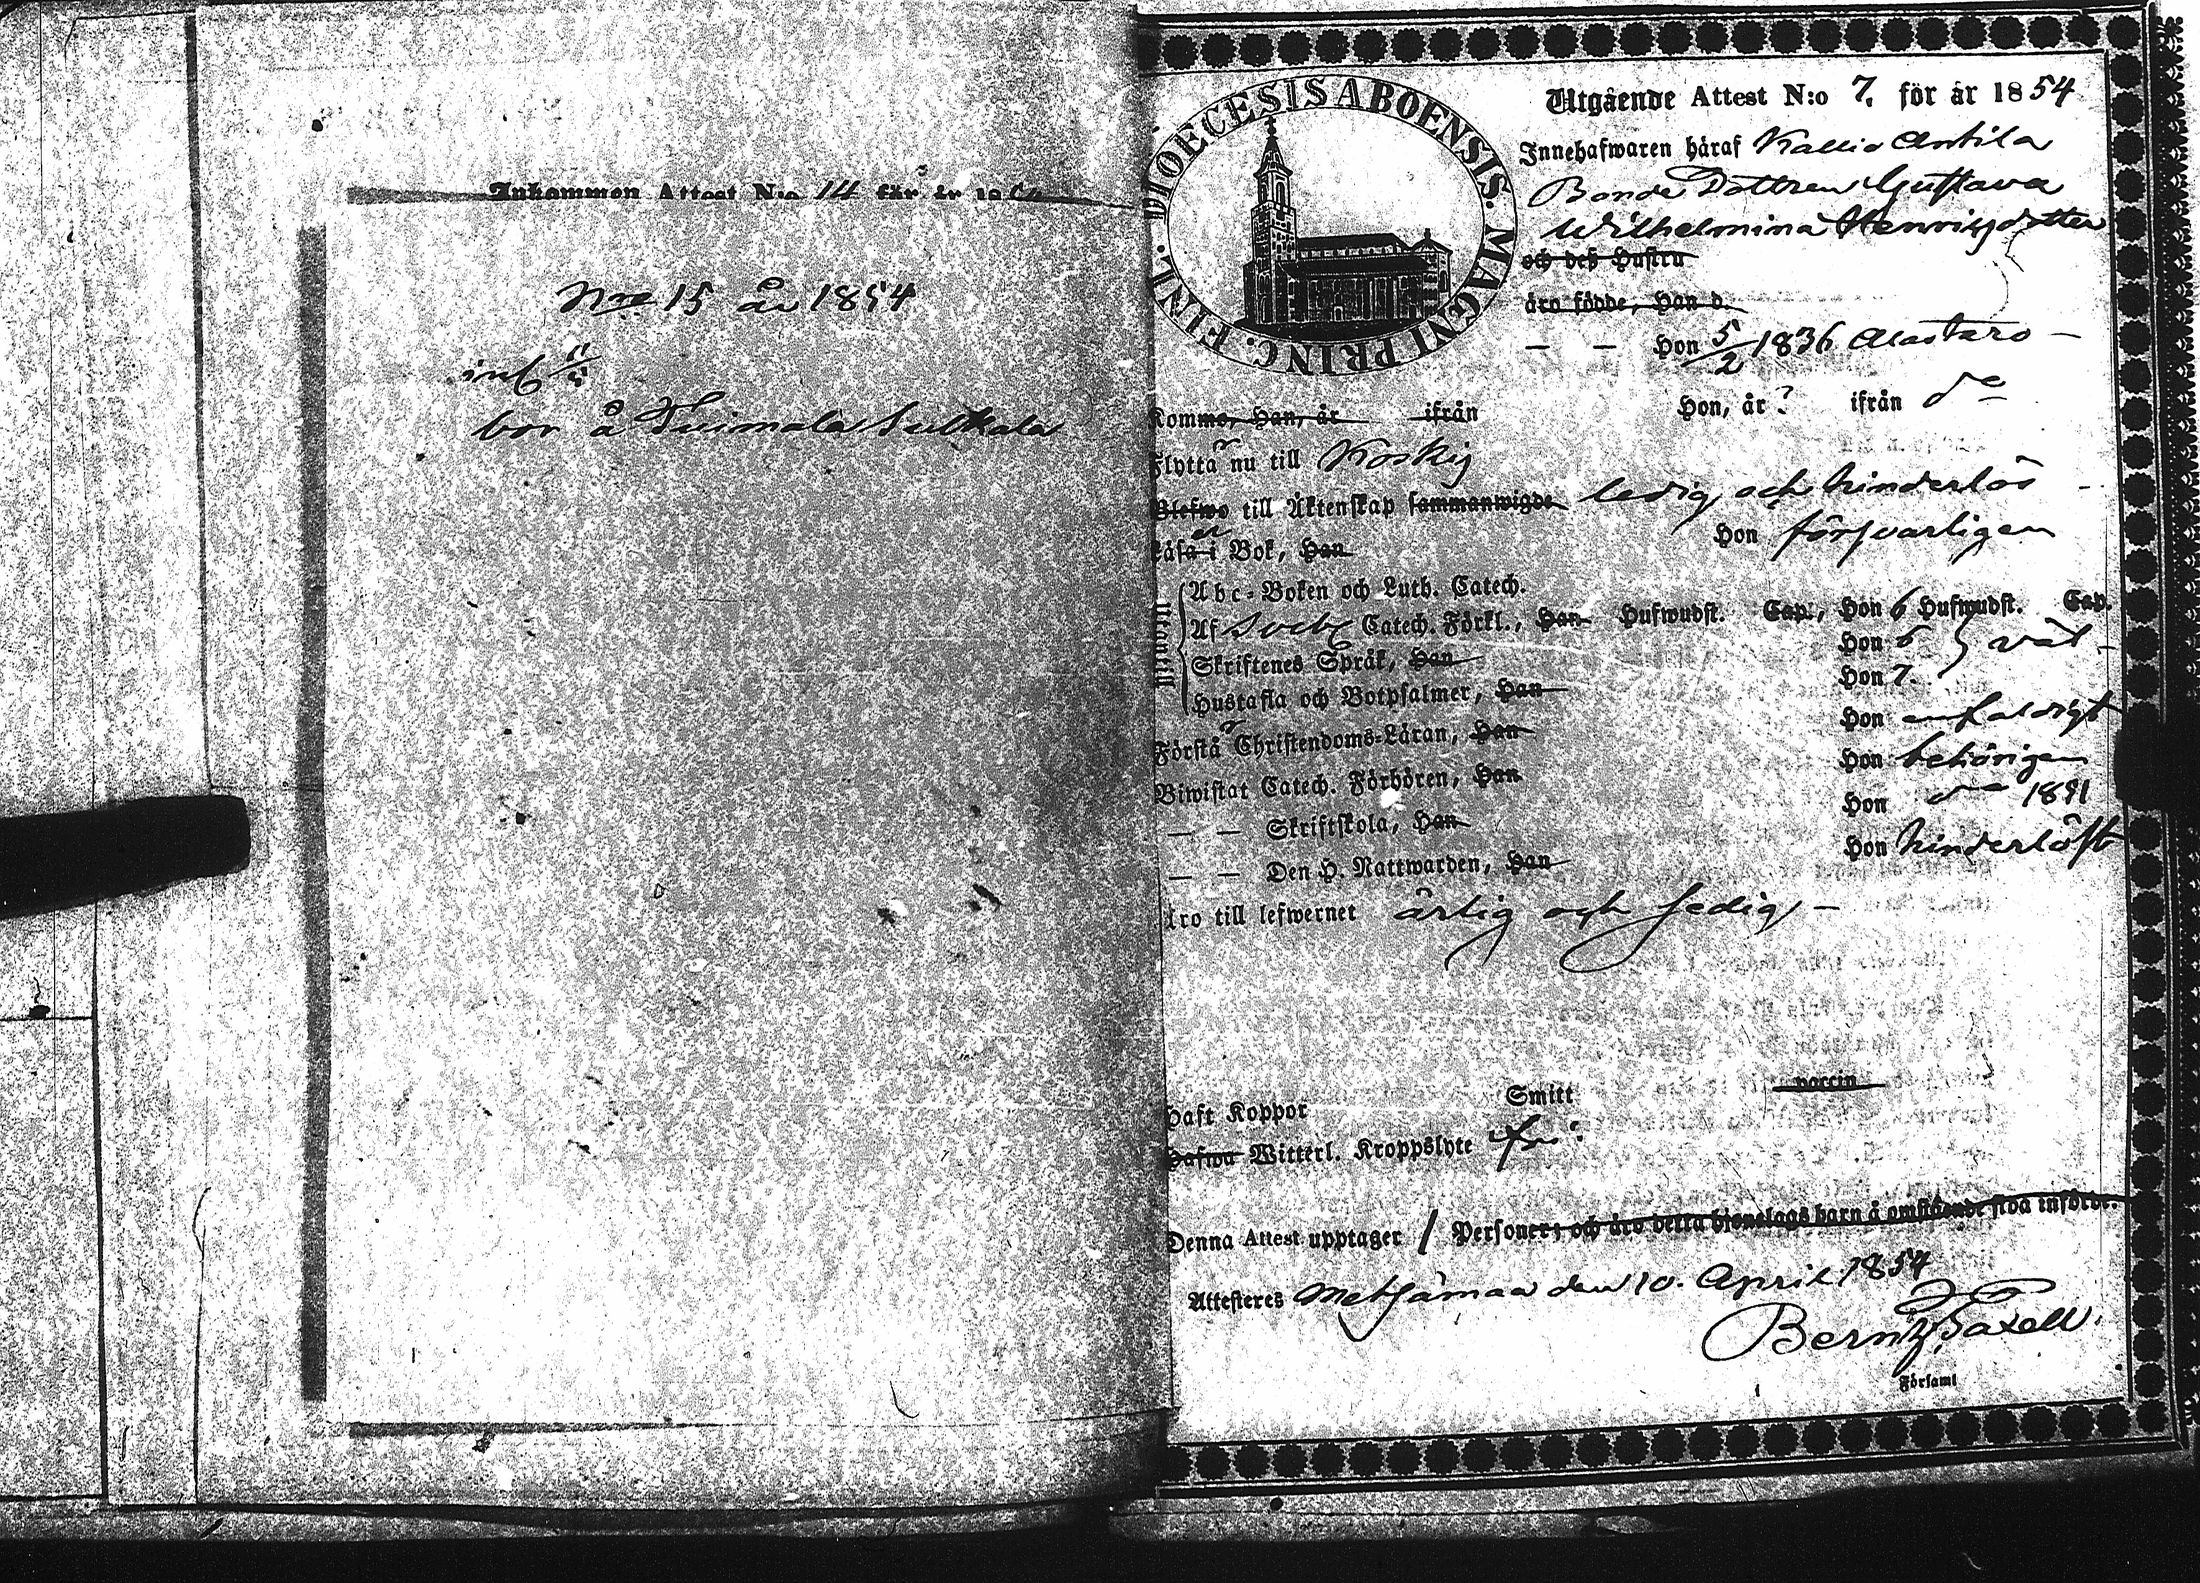 Inkommen Attest N:o 14 för år 18
N:o 15 år 1854
inf 11/5
bor å Tuimala Sulkala
FINL. DIOECESIS ABOENSIS. MAGNI PRINC.
Utgående Attest N:o 7. för år 1854
Innehafwaren häraf Kallio Antila
Bonde Dottren Gustava
Wilhelmina Henriksdotter
och deß Hustru
äro födde, Han d.
— — Hon 5/2 1836 Alastaro —
Komme, Han, år ifrån Hon, år ? ifrån do
Flytta nu till Koskis
Blefwo till Äktenskap sammanwigde ledig och hinderlös -
Läsa i Bok, Han Hon försvarligen
Utantill
Abc-Boken och Luth. Catech.
Af Svebe Catech. Förkl., Han Hufwudst. Cap., Hon 6 Hufwudst. Cap.
Skriftenes Språk, Han Hon 6 } väl -
Hustafla och Botpsalmer, Han Hon 7.
Förstå Christendoms-Läran, Han Hon enfaldigt
Biwistat Catech. Förhören, Han Hon behörigen
— — Skriftskola, Han Hon do 1851
— — Den H. Nattwarden, Han Hon hinderlöst
Äro till lefwernet ärlig och sedig —
Haft Koppor Smitt vaccin
Hafwa Witterl. Kroppslyte
Denna Attest upptager 1 Personer; och äro detta hjonelags barn å omstående sida införde.
Attesteres Metsämaa den 10. April 1854
Berntz Taxell.
Församl